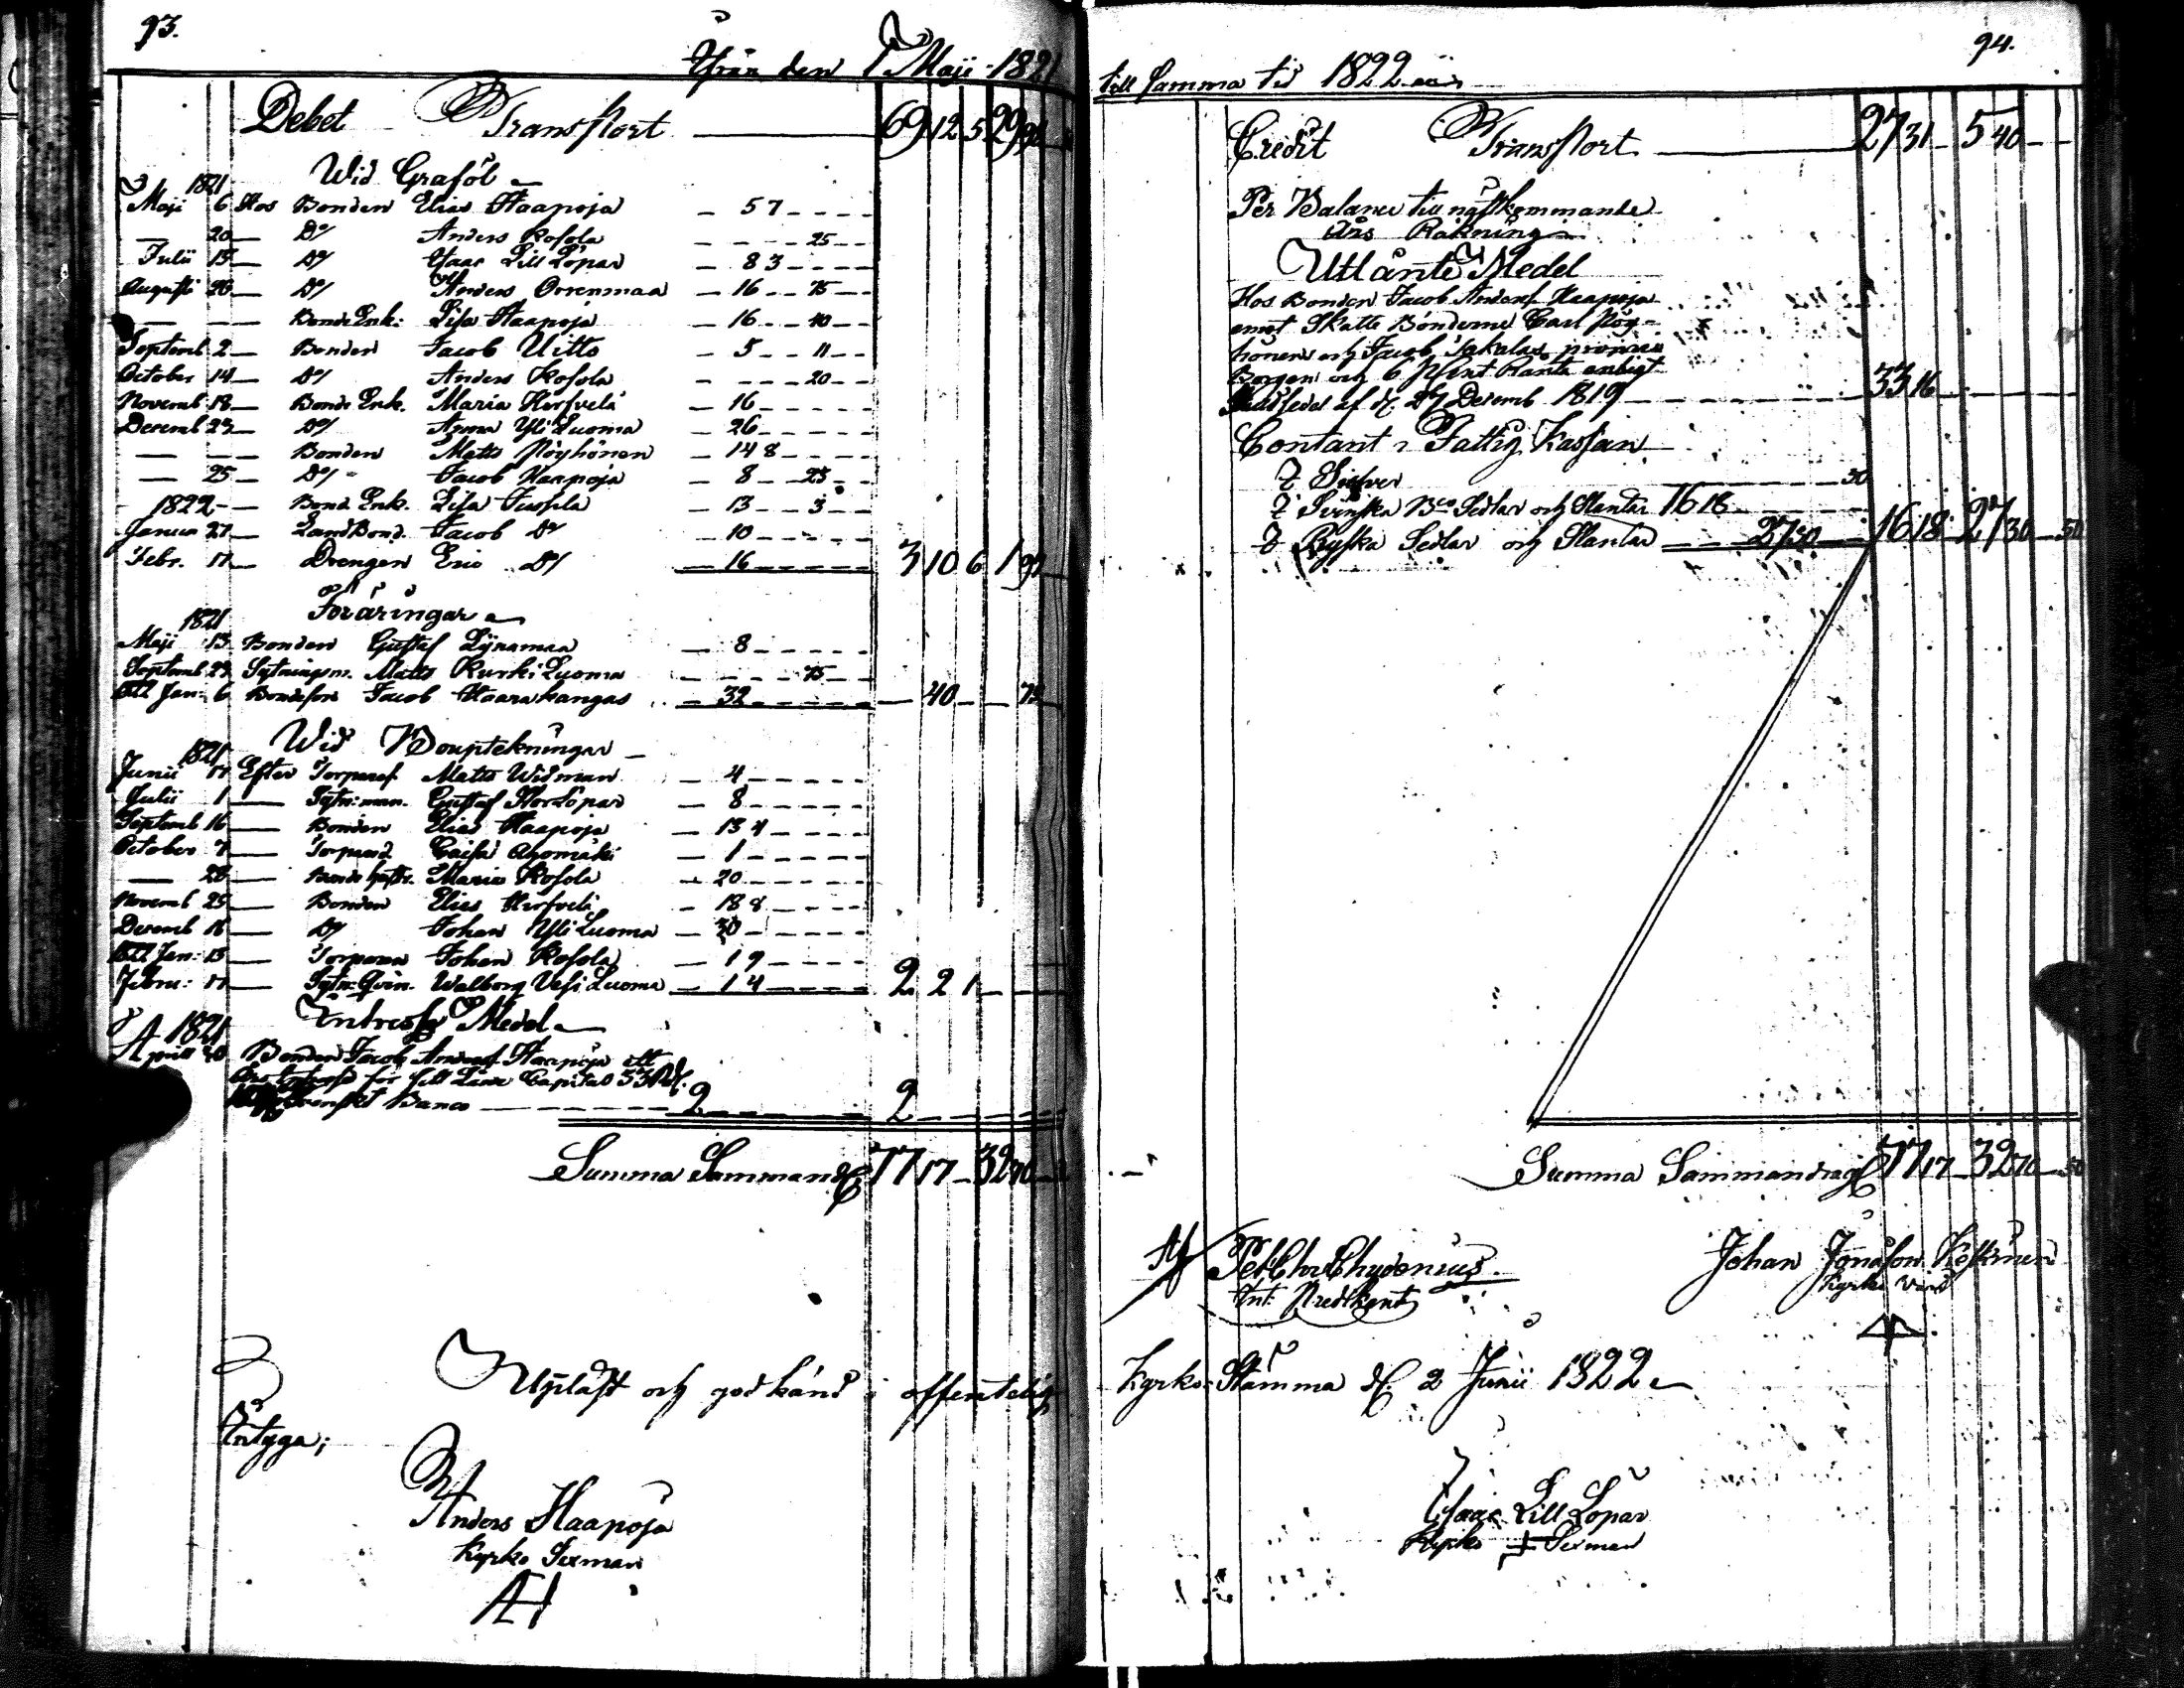 93.
Ifrån den 1 Maji 1821
Debet Transport 69 12 5 29 94
Wid Graföl
1821
Maji 6 Hos Bonden Elias Haapoja 5 7
20 D:o Anders Kosola 25
Julii 15 D:o Isaac Lill Lopar 8 3
Augusti 20 D:o Anders Orrenmaa 16 75
Bonde Enk: Lisa Haapoja 16 40
Septemb 2 Bonden Jacob Uitto 5 11
October 14 D:o Anders Kosola 20
Novemb 18 Bonde Enk. Maria Hirfvelä 16
Decemb 23 D:o Anna Yli Luoma 26
Bonden Matts Pöyhönen 14 8
25 D:o Jacob Haapoja 8 25
1822 Bond Enk. Lisa Jussila 13 3
Janua 27 LandBond. Jacob D:o 10
Febr. 17 Drengen Eric D:o 16 3 10 6 1 99
Föräringar
1821
Maji 13 Bonden Gustaf Lÿramaa 8
Septemb 23 Sytningsm. Matts Kurki Luoma 75
1822 Jan: 6 Bondeson Jacob Haarakangas 32 40 75
Wid Bouptekningar
1821
Junii 17 Efter Torparef. Matts Widman 4
Julii 1 Sytn:man. Gustaf StorLopar 8
Septemb 16 Bonden Elias Haapoja 13 4
October 7 Caisa Ahomäki 1
28 Bonde hustr. Maria Kosola 20
Novemb 25 Bonden Elias Hirfvelä 18 8
Decemb 16 D:o Johan Yli Luoma 30
1822 Jan: 13 Torparen Johan Kosola 1 9
Febru: 17 Sytn:Qvin. Walborg Vesi Luoma 1 4 2 2 1
Intresse Medel
1821
Aprill 30 Bonden Jacob Andersf. Haapoja ett
års Intresse för sitt Länta Capital 33 Rd.
Svenskt Banco 2 2
Summa Sammandr 77 17 32 70
Upläst och godkänd i offentelig
Intyga;
Anders Haapoja
Kyrko Sexman
AH
94.
till samma tid 1822
Credit Transport 27 31 5 40
Per Balance till nästkommande
års Räkning
Utlänte Medel
Hos Bonden Jacob Andersf. Haapoja
emot Skatte Bönderne Carl Pöy-
hönens och Jacob Jakalas
Borgen och 6 pCent Ranta enligt
Skuldsedel af d. 27 Decemb 1819 33 16
Contant i Fattig Kassan
I Silfver 50
I Svenska B:co Sedlar och Slantar 16 18
I Ryska Sedlar och Slantar 27 30 16 18 27 30 50
Summa Sammandrag 77 17 32 70 50
Pet Chr Chydenius
Ant. Predikant
Johan Jonasson Keskinen
Kyrko Värd
Kyrko-Stämma d. 2 Junii 1822
Isaac Lill Lopar
Kyrko Sexman